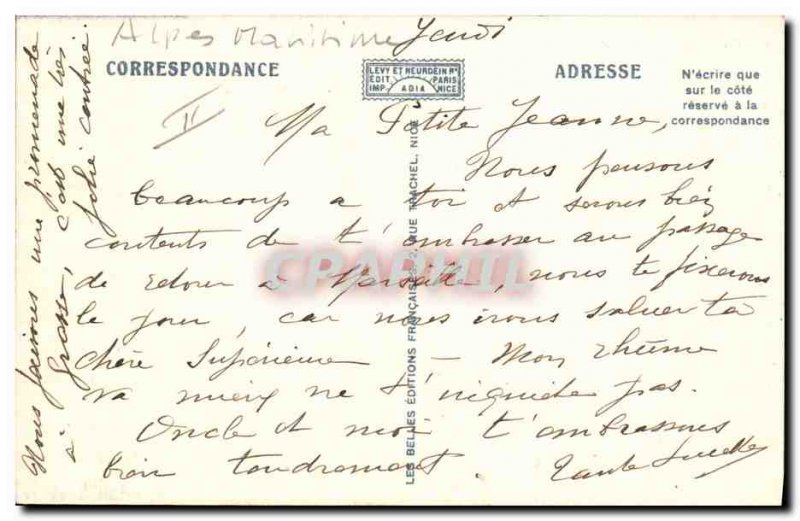 Alpes Maritime
Jeudi
CORRESPONDANCE
LEVY ET NEURDEIN Rs
EDIT. PARIS
IMP. ADIA NICE
ADRESSE
N'écrire que
sur le côté
réservé à la
correspondance
II
Ma Petite Jeanne,
Nous pensons
beaucoup a toi et serons bien
contents de t'embrasser au passage
de retour a Marseille, nous te fixerons
le jour, car nous irons saluer ta
chère Supérieure – Mon rhume
va mieux ne t'inquiète pas.
Oncle et moi t'embrassons
bien tendrement. Tante
Nous faisons une promenade
à Grasse, c'est une très
jolie contrée.
LES BELLES ÉDITIONS FRANÇAISES, 2, RUE TRACHEL, NICE
CPARHIL